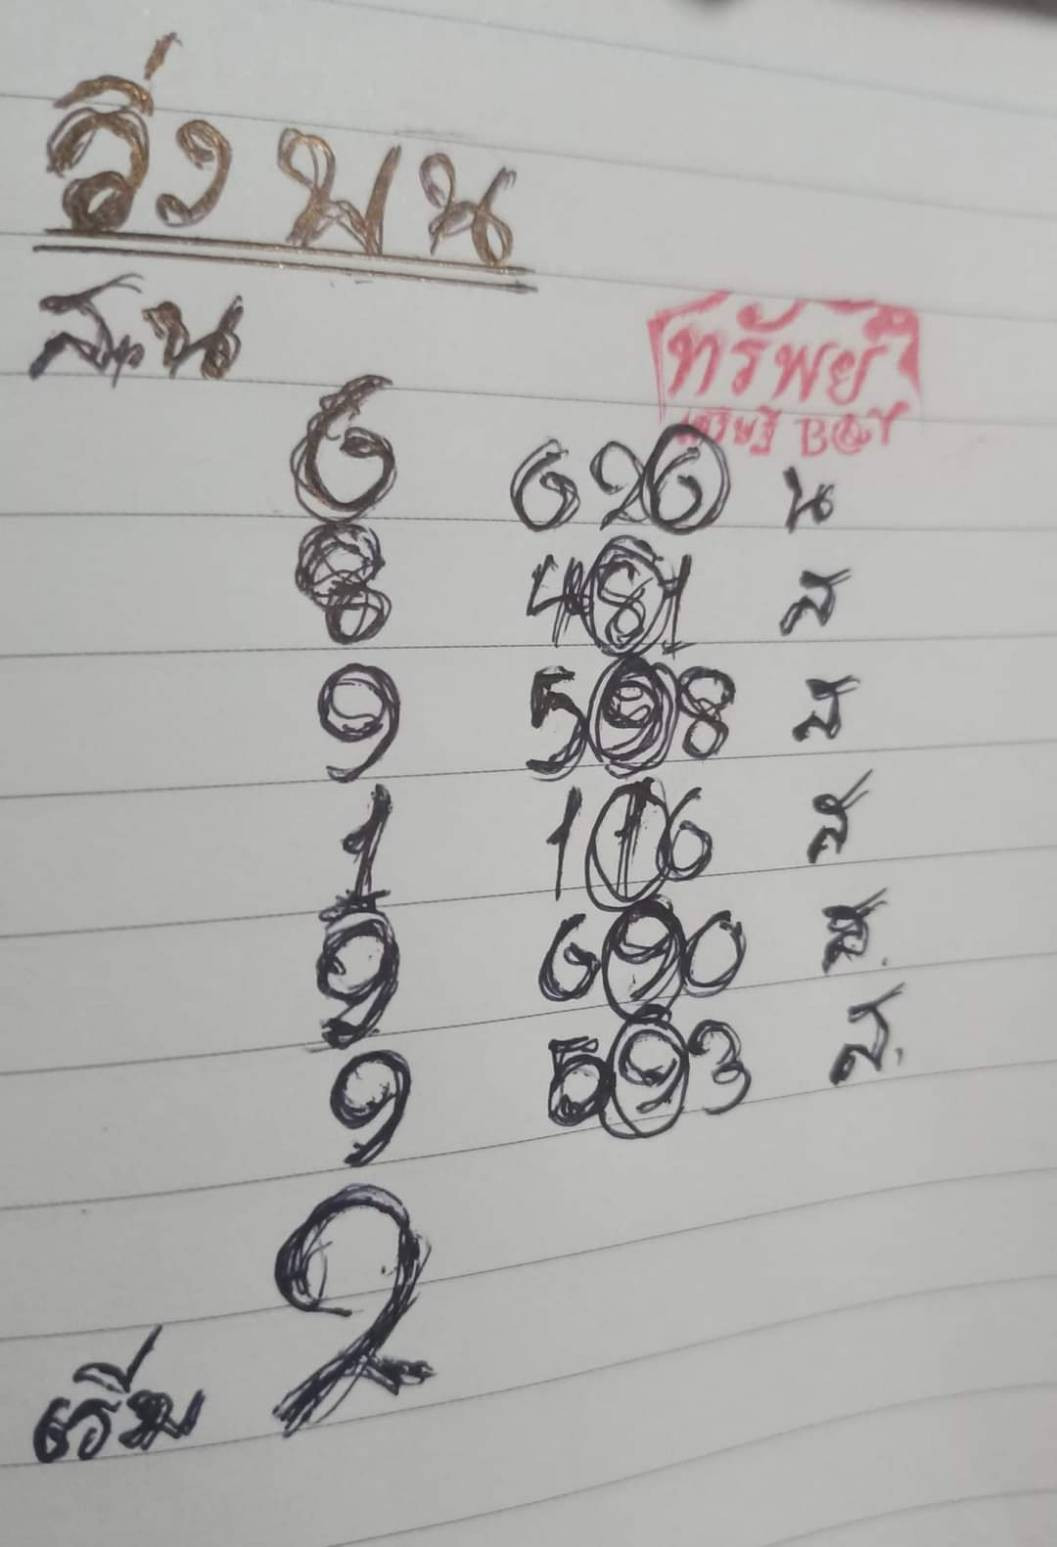 วิ่งบน
ส.น
ทรัพย์
เศรษฐี B@Y
6 626 น
8 481 ส
9 598 ส
1 116 ส
9 690 ส.
9 593 ส.
2
เริ่ม